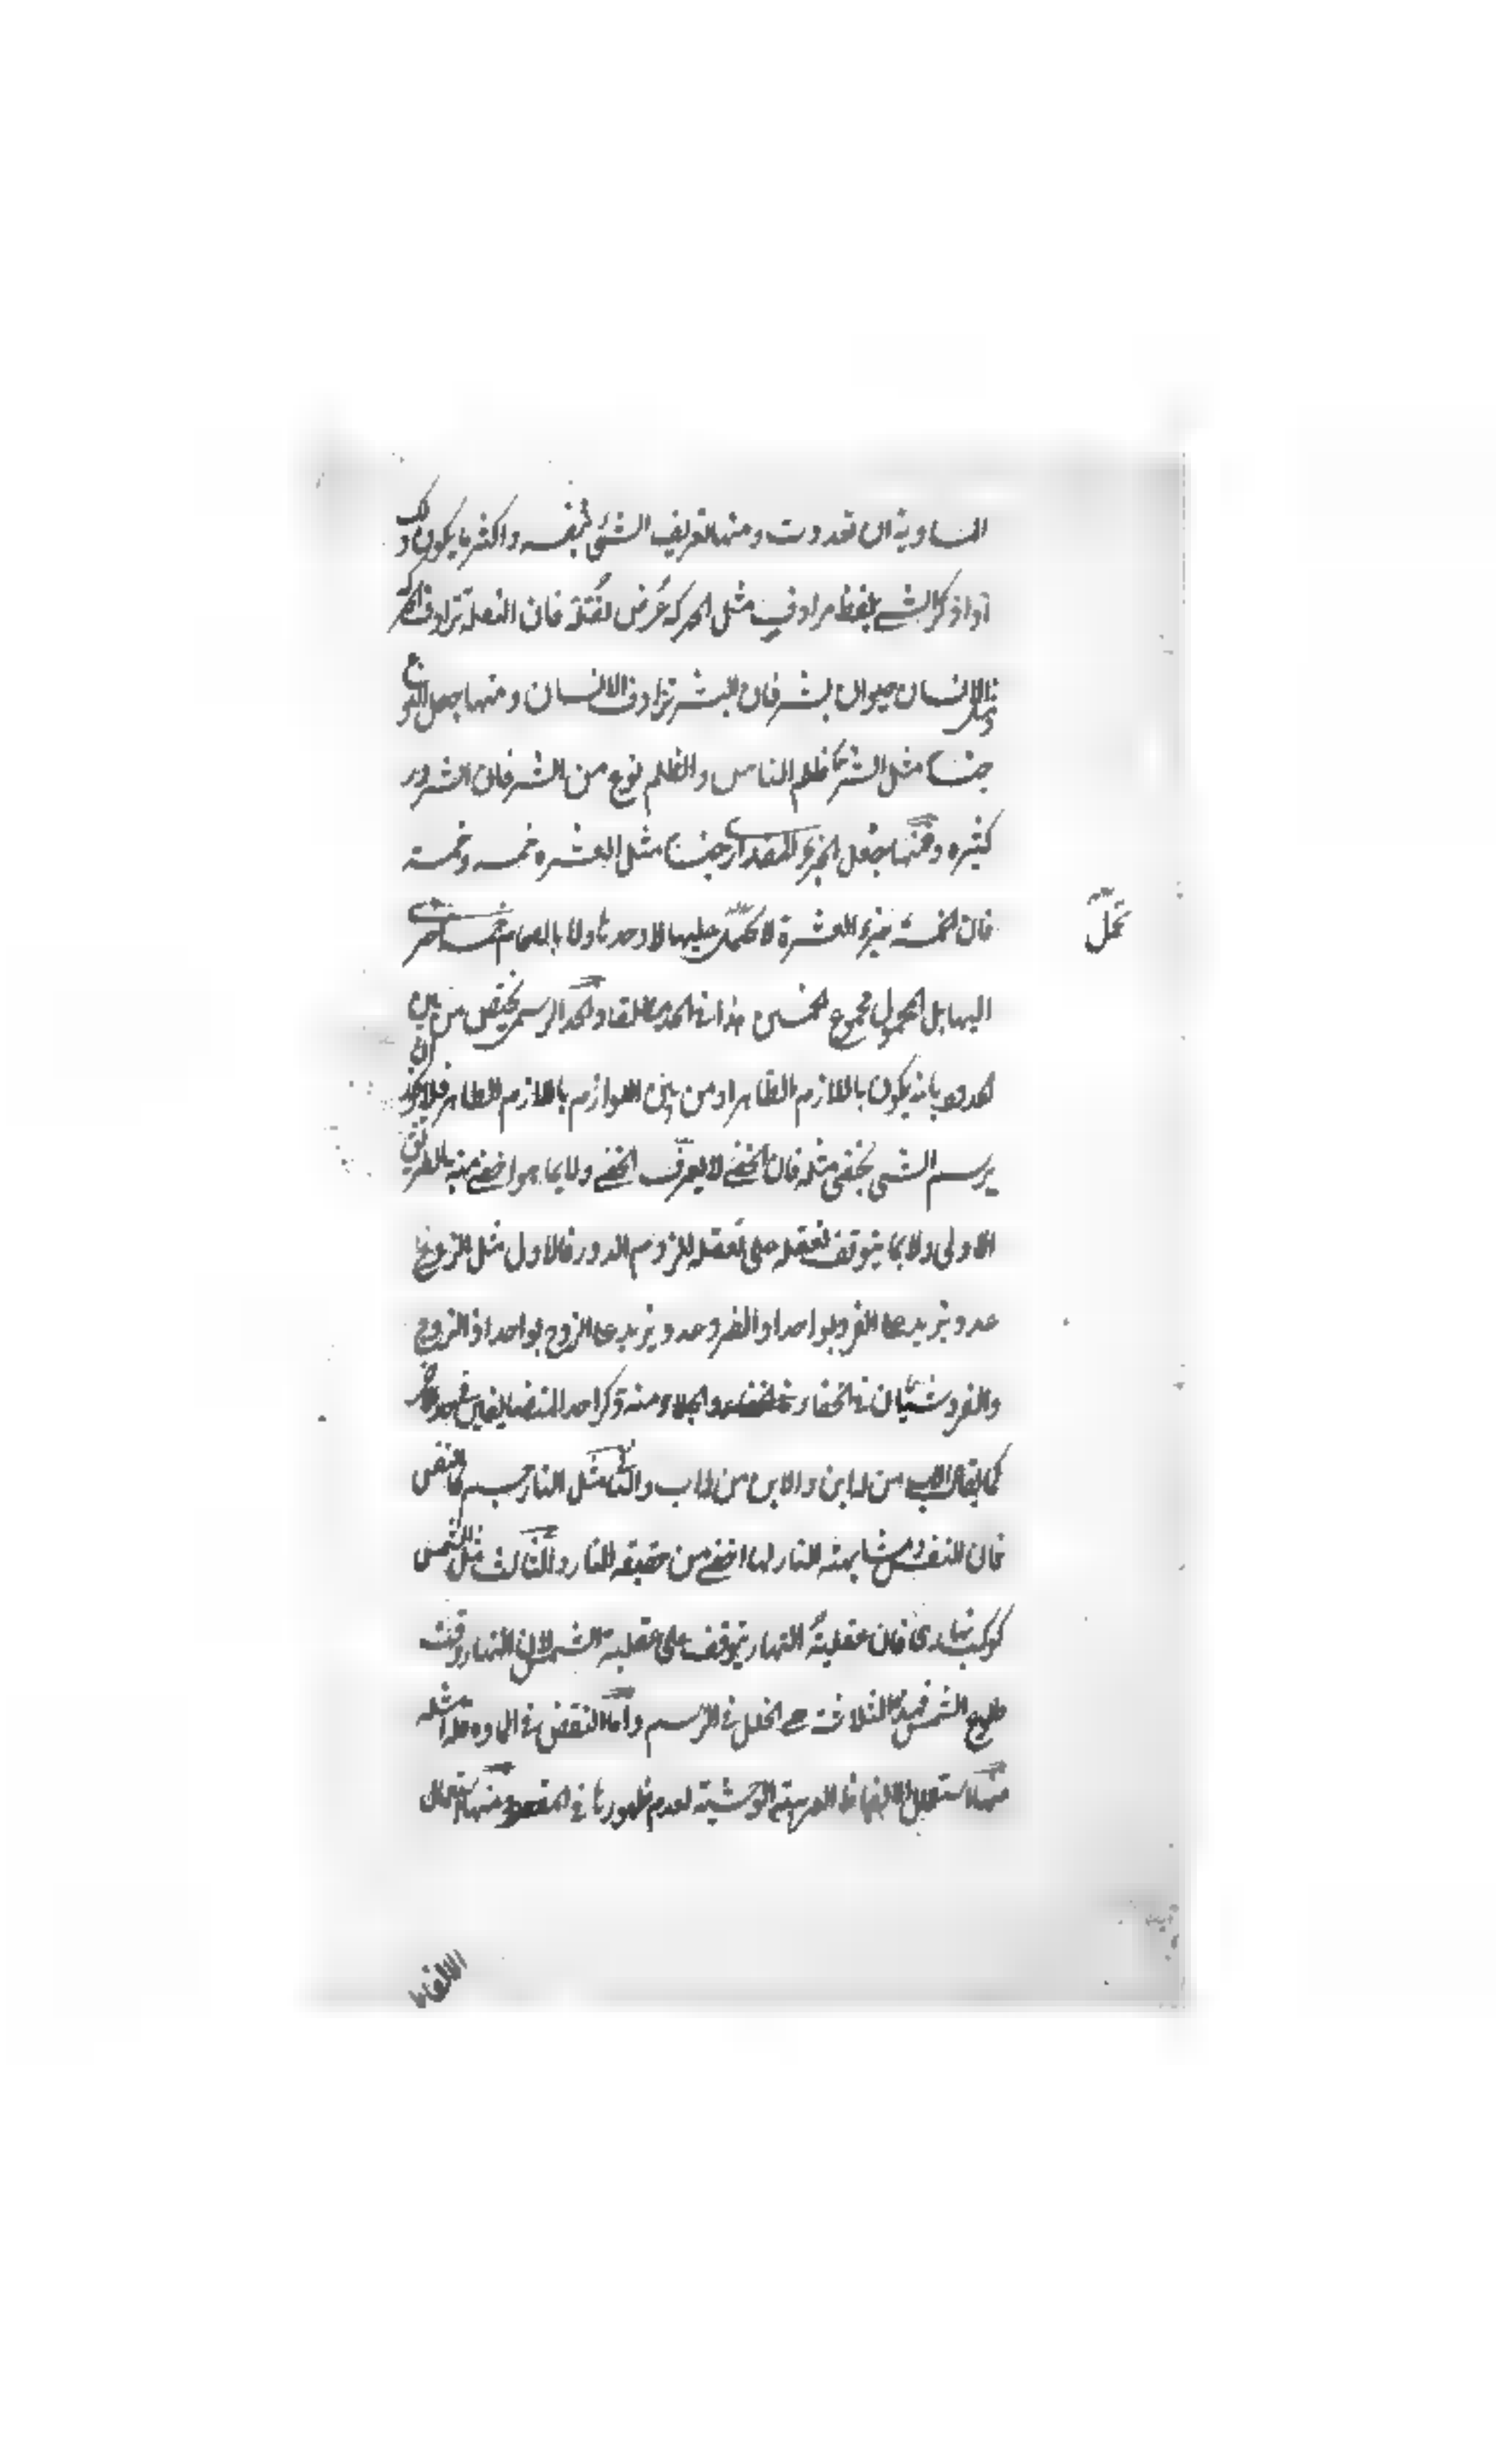 المساوية ان تعددت ومنها تعريف الشئ بنفسه واكثر ما يكون ذلك
اذا ذكر الشي بلفظ مرادف مثل الحركة عرض نقلة فان النقلة ترادف الحركة
ومثل الانسان حيوان بشر فان البشر ترادف الانسان ومنها جعل النوع
جنسا مثل الشر ظلم الناس والظلم نوع من الشر فان الشرور
كثيره ومنها جعل الجزء المقداري جنسا مثل العشره خمسه وخمسة
فان الخمسة جزء العشرة لا تحمل عليها لا وحدها ولا بانضمام خمسة اخرى
اليها بل المحمول مجموع الخمسين هذا في الحد مطلقا والحد الرسمي يختص من بين
الحدود بانه يكون باللازم الظاهر او من بين اللوازم باللازم الظاهر فلا يجوز ان
يرسم الشي بخفي مثله فان الخفي لا يعرف الخفي ولا بما هو اخفي منه بالطريق
الاولى ولا بما يتوقف تعقله على تعقله للزوم الدور فالاول مثل الزوج
عدد يزيد على الفرد بواحد او الفرد عدد يزيد على الزوج بواحد اذ الزوج
والفرد سيان في الخفاء والجلاء ومنه ذكر احد المتضايفين في حد الاخر
كما يقال الاب من له ابن والابن من له اب والثاني مثل النار جسم كالنفس
فان النفس ومشابهة النار لها اخفي من حقيقة النار والثالث مثل الشمس
كوكب نهاري فان عقلية النهار يتوقف على عقلية الشمس لان النهار وقت
طلوع الشمس فهذه الثلاثة هي الخلل في الرسم واما النقض في المادة فله امثله
منها استعمال الالفاظ الغريبة الوحشية لعدم ظهورها في المقصود ومنها استعمال
تحمل
الالفاظ